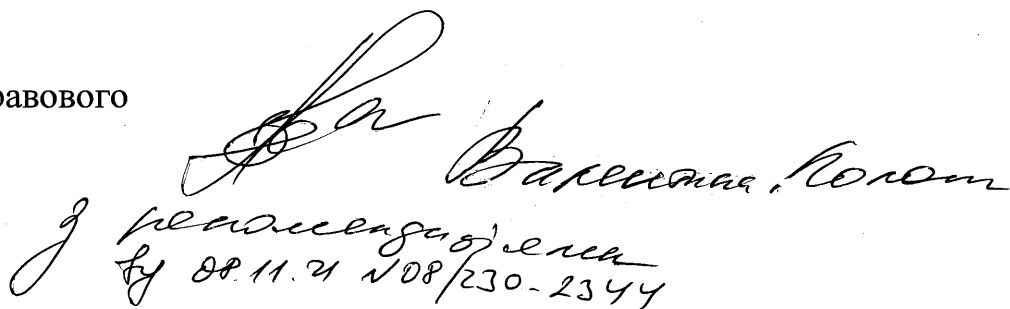 равового
Валентина Колот
з рекомендаціями
від 08.11.21 №08/230-2344